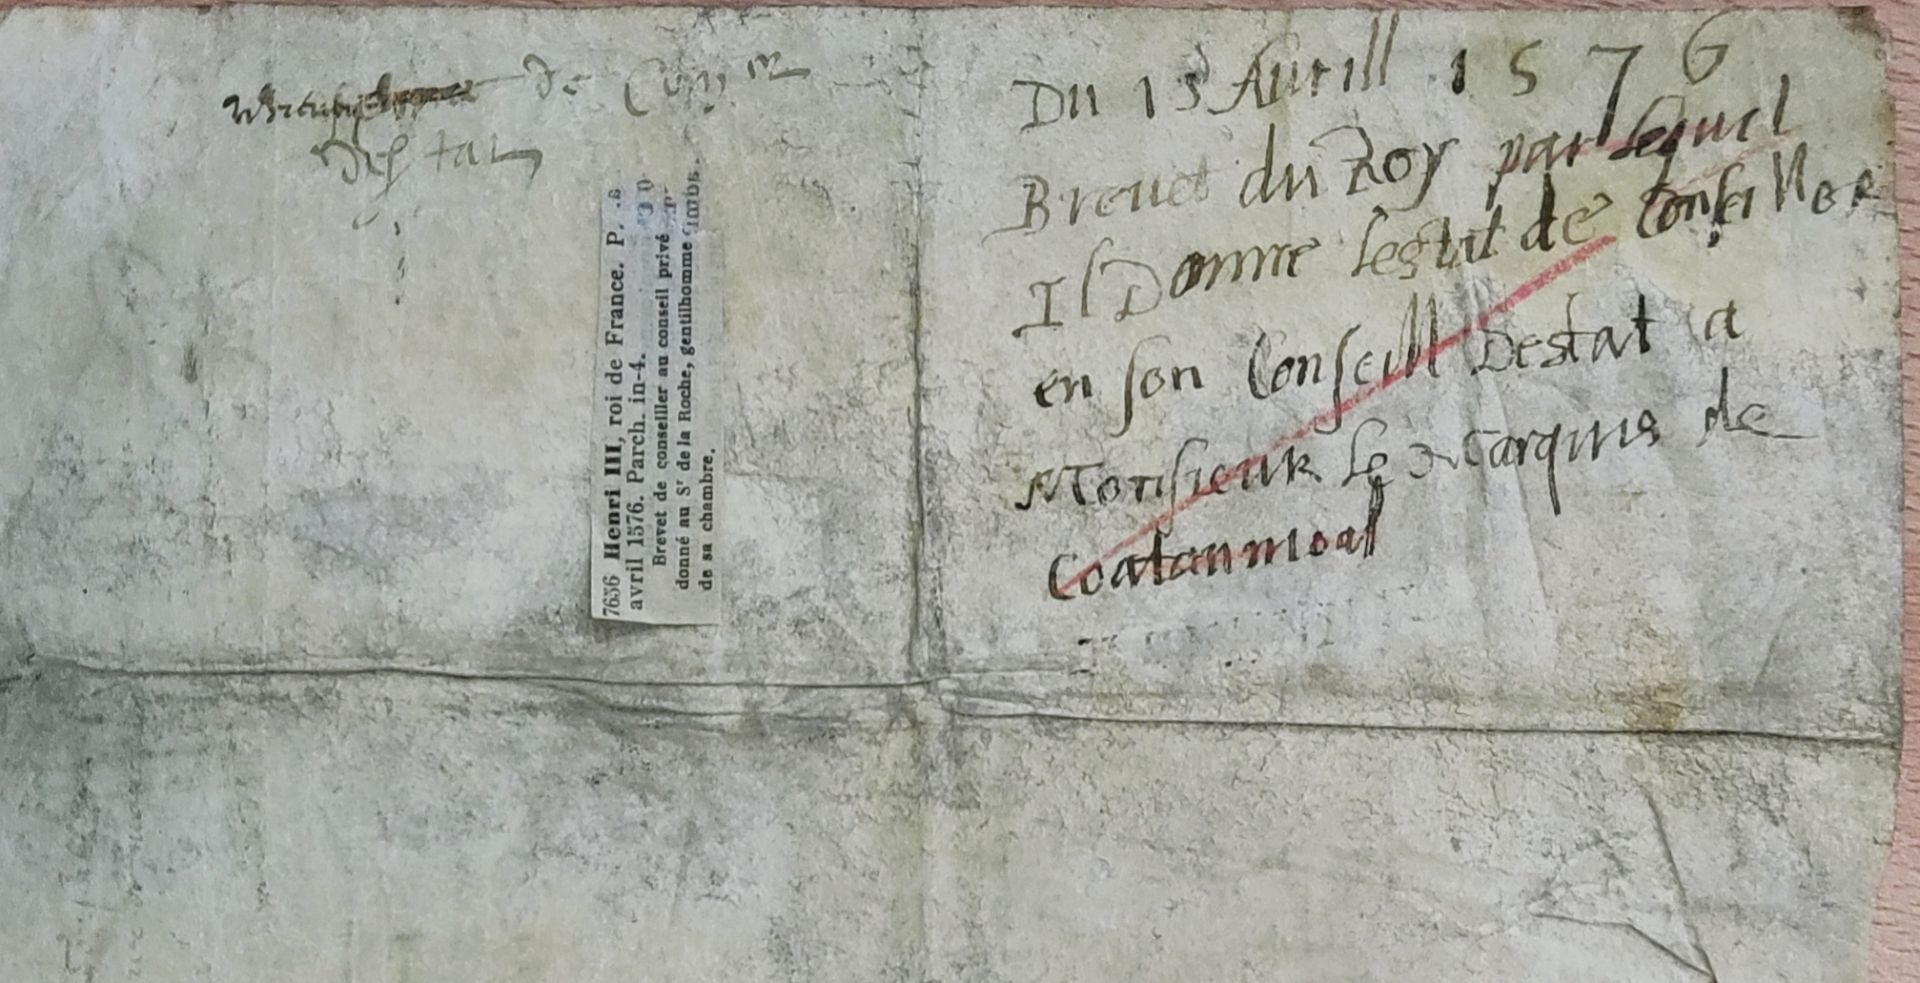 de
destat
7656 Henri III, roi de France. P. s.
avril 1576. Parch. in-4.
Brevet de conseiller au conseil privé
donné au Sr de la Roche, gentilhomme
de sa chambre.
Du 13 Avrill 1576
Brevet du Roy par lequel
Il Donne lestat de Conseiller
en son Conseill Destat a
Monsieur le Marquis de
Coatanmoal